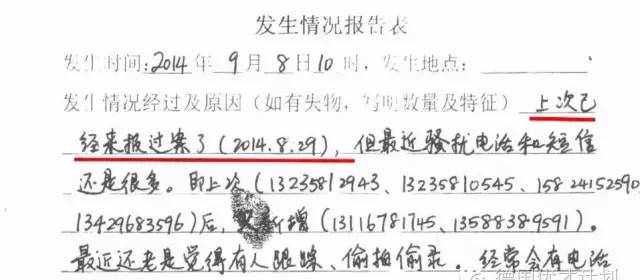 发生情况报告表
发生时间:2014年9月8日10时,发生地点:
发生情况经过及原因(如有失物,写明数量及特征)上次已
经来报过案了(2014.8.29),但最近骚扰电话和短信
还是很多。即上次(13235812943、13235810545、15824152590
13429683596)后,又新增(13116781745、13588389591)。
最近还老是觉得有人跟踪、偷拍偷录。经常会有电话
德国优才计划